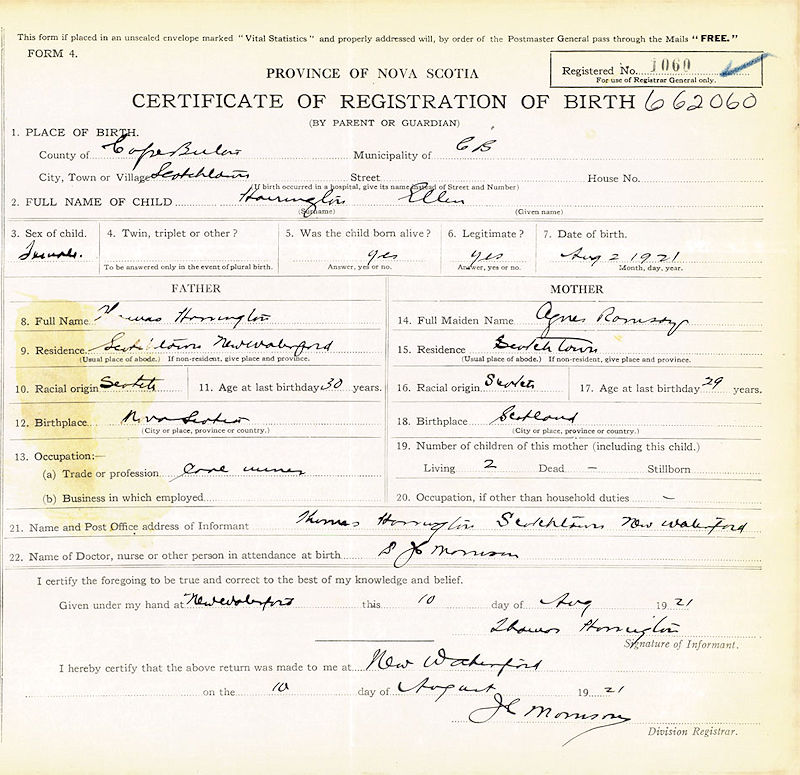 This form if placed in an unsealed envelope marked "Vital Statistics" and properly addressed will, by order of the Postmaster General pass through the Mails "FREE."
FORM 4.
PROVINCE OF NOVA SCOTIA
Registered No. 1060
For use of Registrar General only.
CERTIFICATE OF REGISTRATION OF BIRTH 662060
(BY PARENT OR GUARDIAN)
1. PLACE OF BIRTH.
County of Cape Breton Municipality of C B
City, Town or Village Scotchtown Street House No.
(If birth occurred in a hospital, give its name instead of Street and Number)
2. FULL NAME OF CHILD Horrington Ellen
(Surname) (Given name)
3. Sex of child. 4. Twin, triplet or other? 5. Was the child born alive? 6. Legitimate? 7. Date of birth.
Female. yes yes Aug 2 1921
To be answered only in the event of plural birth. Answer, yes or no. Answer, yes or no. Month, day, year.
FATHER MOTHER
8. Full Name Thomas Horrington 14. Full Maiden Name Agnes Ramsay
9. Residence Scotchtown New Waterford 15. Residence Scotchtown
(Usual place of abode.) If non-resident, give place and province. (Usual place of abode.) If non-resident, give place and province.
10. Racial origin Scotch 11. Age at last birthday 30 years. 16. Racial origin Scotch 17. Age at last birthday 29 years.
12. Birthplace Nova Scotia 18. Birthplace Scotland
(City or place, province or country.) (City or place, province or country.)
13. Occupation:— 19. Number of children of this mother (including this child.)
(a) Trade or profession Coal miner Living 2 Dead – Stillborn
(b) Business in which employed 20. Occupation, if other than household duties –
21. Name and Post Office address of Informant Thomas Horrington Scotchtown New Waterford
22. Name of Doctor, nurse or other person in attendance at birth Morrison
I certify the foregoing to be true and correct to the best of my knowledge and belief.
Given under my hand at New Waterford this 10 day of Aug 19 21
Thomas Horrington
Signature of Informant.
I hereby certify that the above return was made to me at New Waterford
on the 10 day of August 19 21
Morrison
Division Registrar.